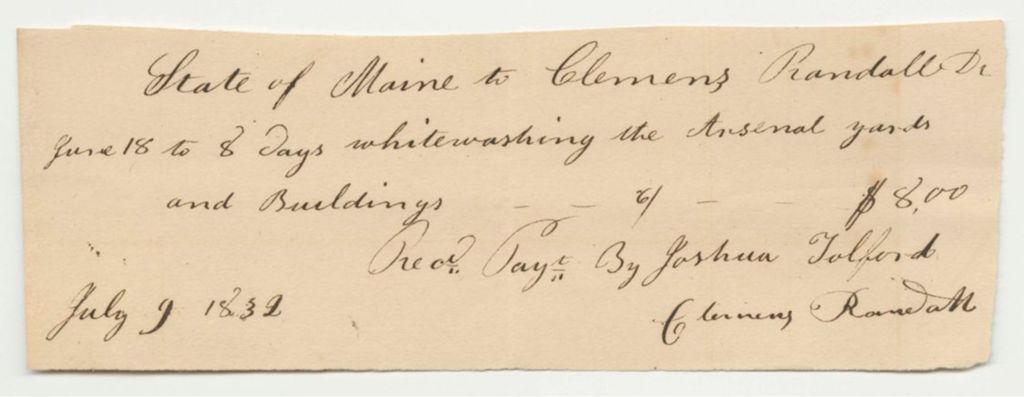 State of Maine to Clemens Randall Dr
June 18 to 8 Days whitewashing the Arsenal yards
and Buildings - - 6/ - - $8,00
Recd. Payt. By Joshua Tolford
July 9 1832 Clemens Randall